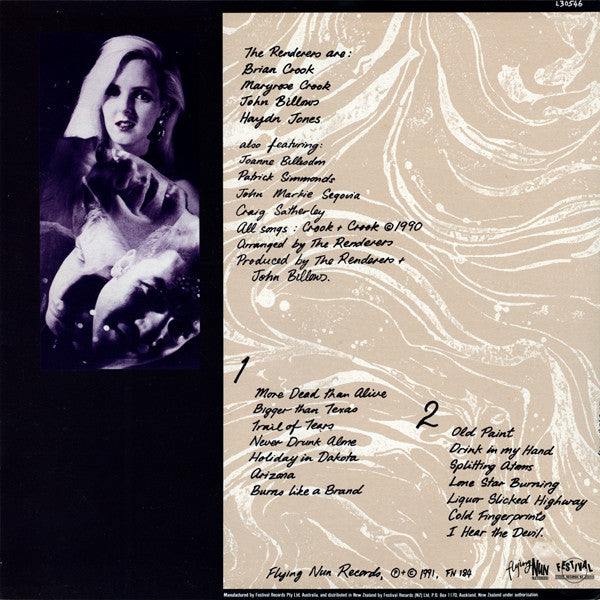 L30546
The Renderers are:
Brian Crook
Maryrose Crook
John Billows
Haydn Jones
also featuring:
Joanne Billesdon
Patrick Simmonds
John Markie Segovia
Craig Satherley
All songs : Crook + Crook © 1990
Arranged by The Renderers
Produced by The Renderers +
John Billows.
1
More Dead than Alive
Bigger than Texas
Trail of Tears
Never Drunk Alone
Holiday in Dakota
Arizona
Burns like a Brand
2
Old Paint
Drink in my Hand
Splitting Atoms
Lone Star Burning
Liquor Slicked Highway
Cold Fingerprints
I Hear the Devil.
Flying Nun Records, ℗ + © 1991, FN 184
flying NUN
FESTIVAL
Manufactured by Festival Records Pty Ltd. Australia, and distributed in New Zealand by Festival Records (NZ) Ltd, P.O. Box 1170, Auckland, New Zealand under authorisation.